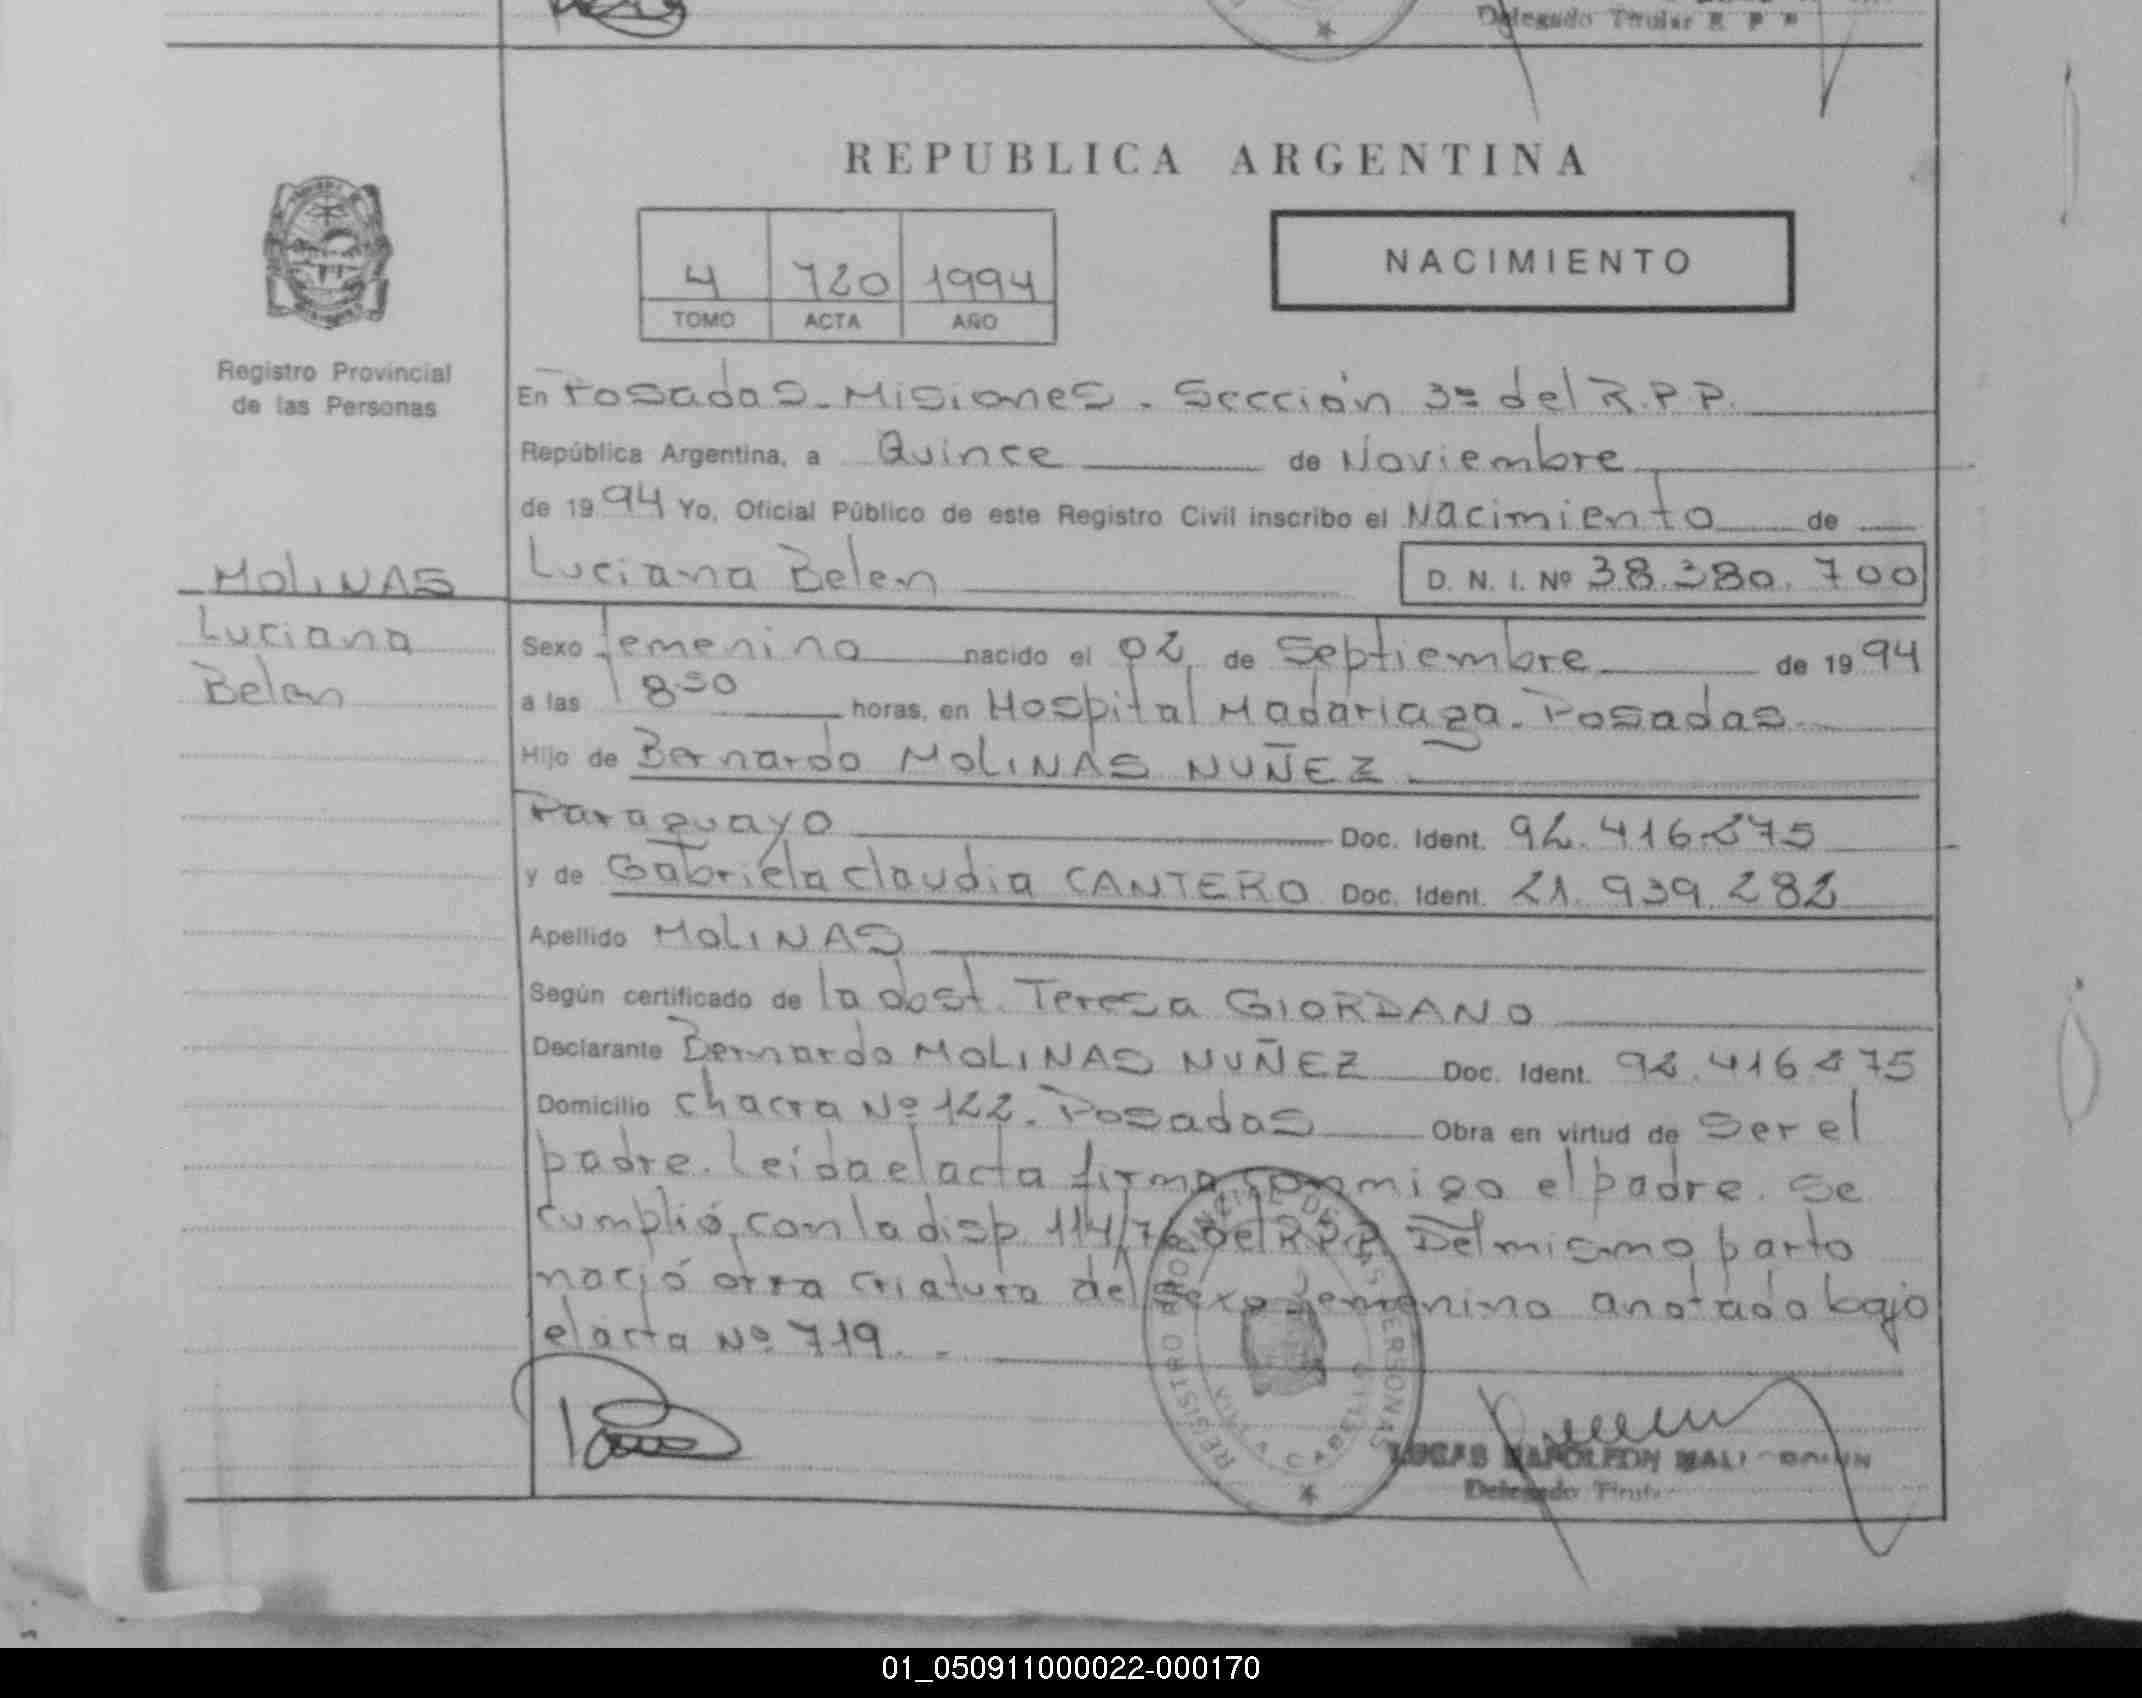 Delegado Titular R P P
REPUBLICA ARGENTINA
4 720 1994
TOMO ACTA AÑO
NACIMIENTO
Registro Provincial
de las Personas
En Posadas - Misiones - Sección 3ª del R.P.P.
República Argentina, a Quince de Noviembre
de 1994 Yo, Oficial Público de este Registro Civil inscribo el Nacimiento de
Luciana Belen D. N. I. Nº 38.380.700
MOLINAS
Luciana
Belen
Sexo femenino nacido el 02 de Septiembre de 1994
a las horas, en Hospital Madariaga. Posadas
Hijo de Bernardo MOLINAS NUÑEZ
Paraguayo Doc. Ident. 92.416.275
y de Gabriela claudia CANTERO Doc. Ident. 21.939.282
Apellido MOLINAS
Según certificado de la obst. Teresa GIORDANO
Declarante Bernardo MOLINAS NUÑEZ Doc. Ident. 92.416.275
Domicilio chacra Nº 122. Posadas Obra en virtud de Ser el
padre. Leída el acta firma conmigo el padre. Se
cumplió con la disp. 114/76 del R.P.P. Del mismo parto
nació otra criatura del sexo femenino anotado bajo
el acta Nº 719.-
REGISTRO PROVINCIAL DE LAS PERSONAS
LUCAS NAPOLEON
Delegado Titular
01_050911000022-000170